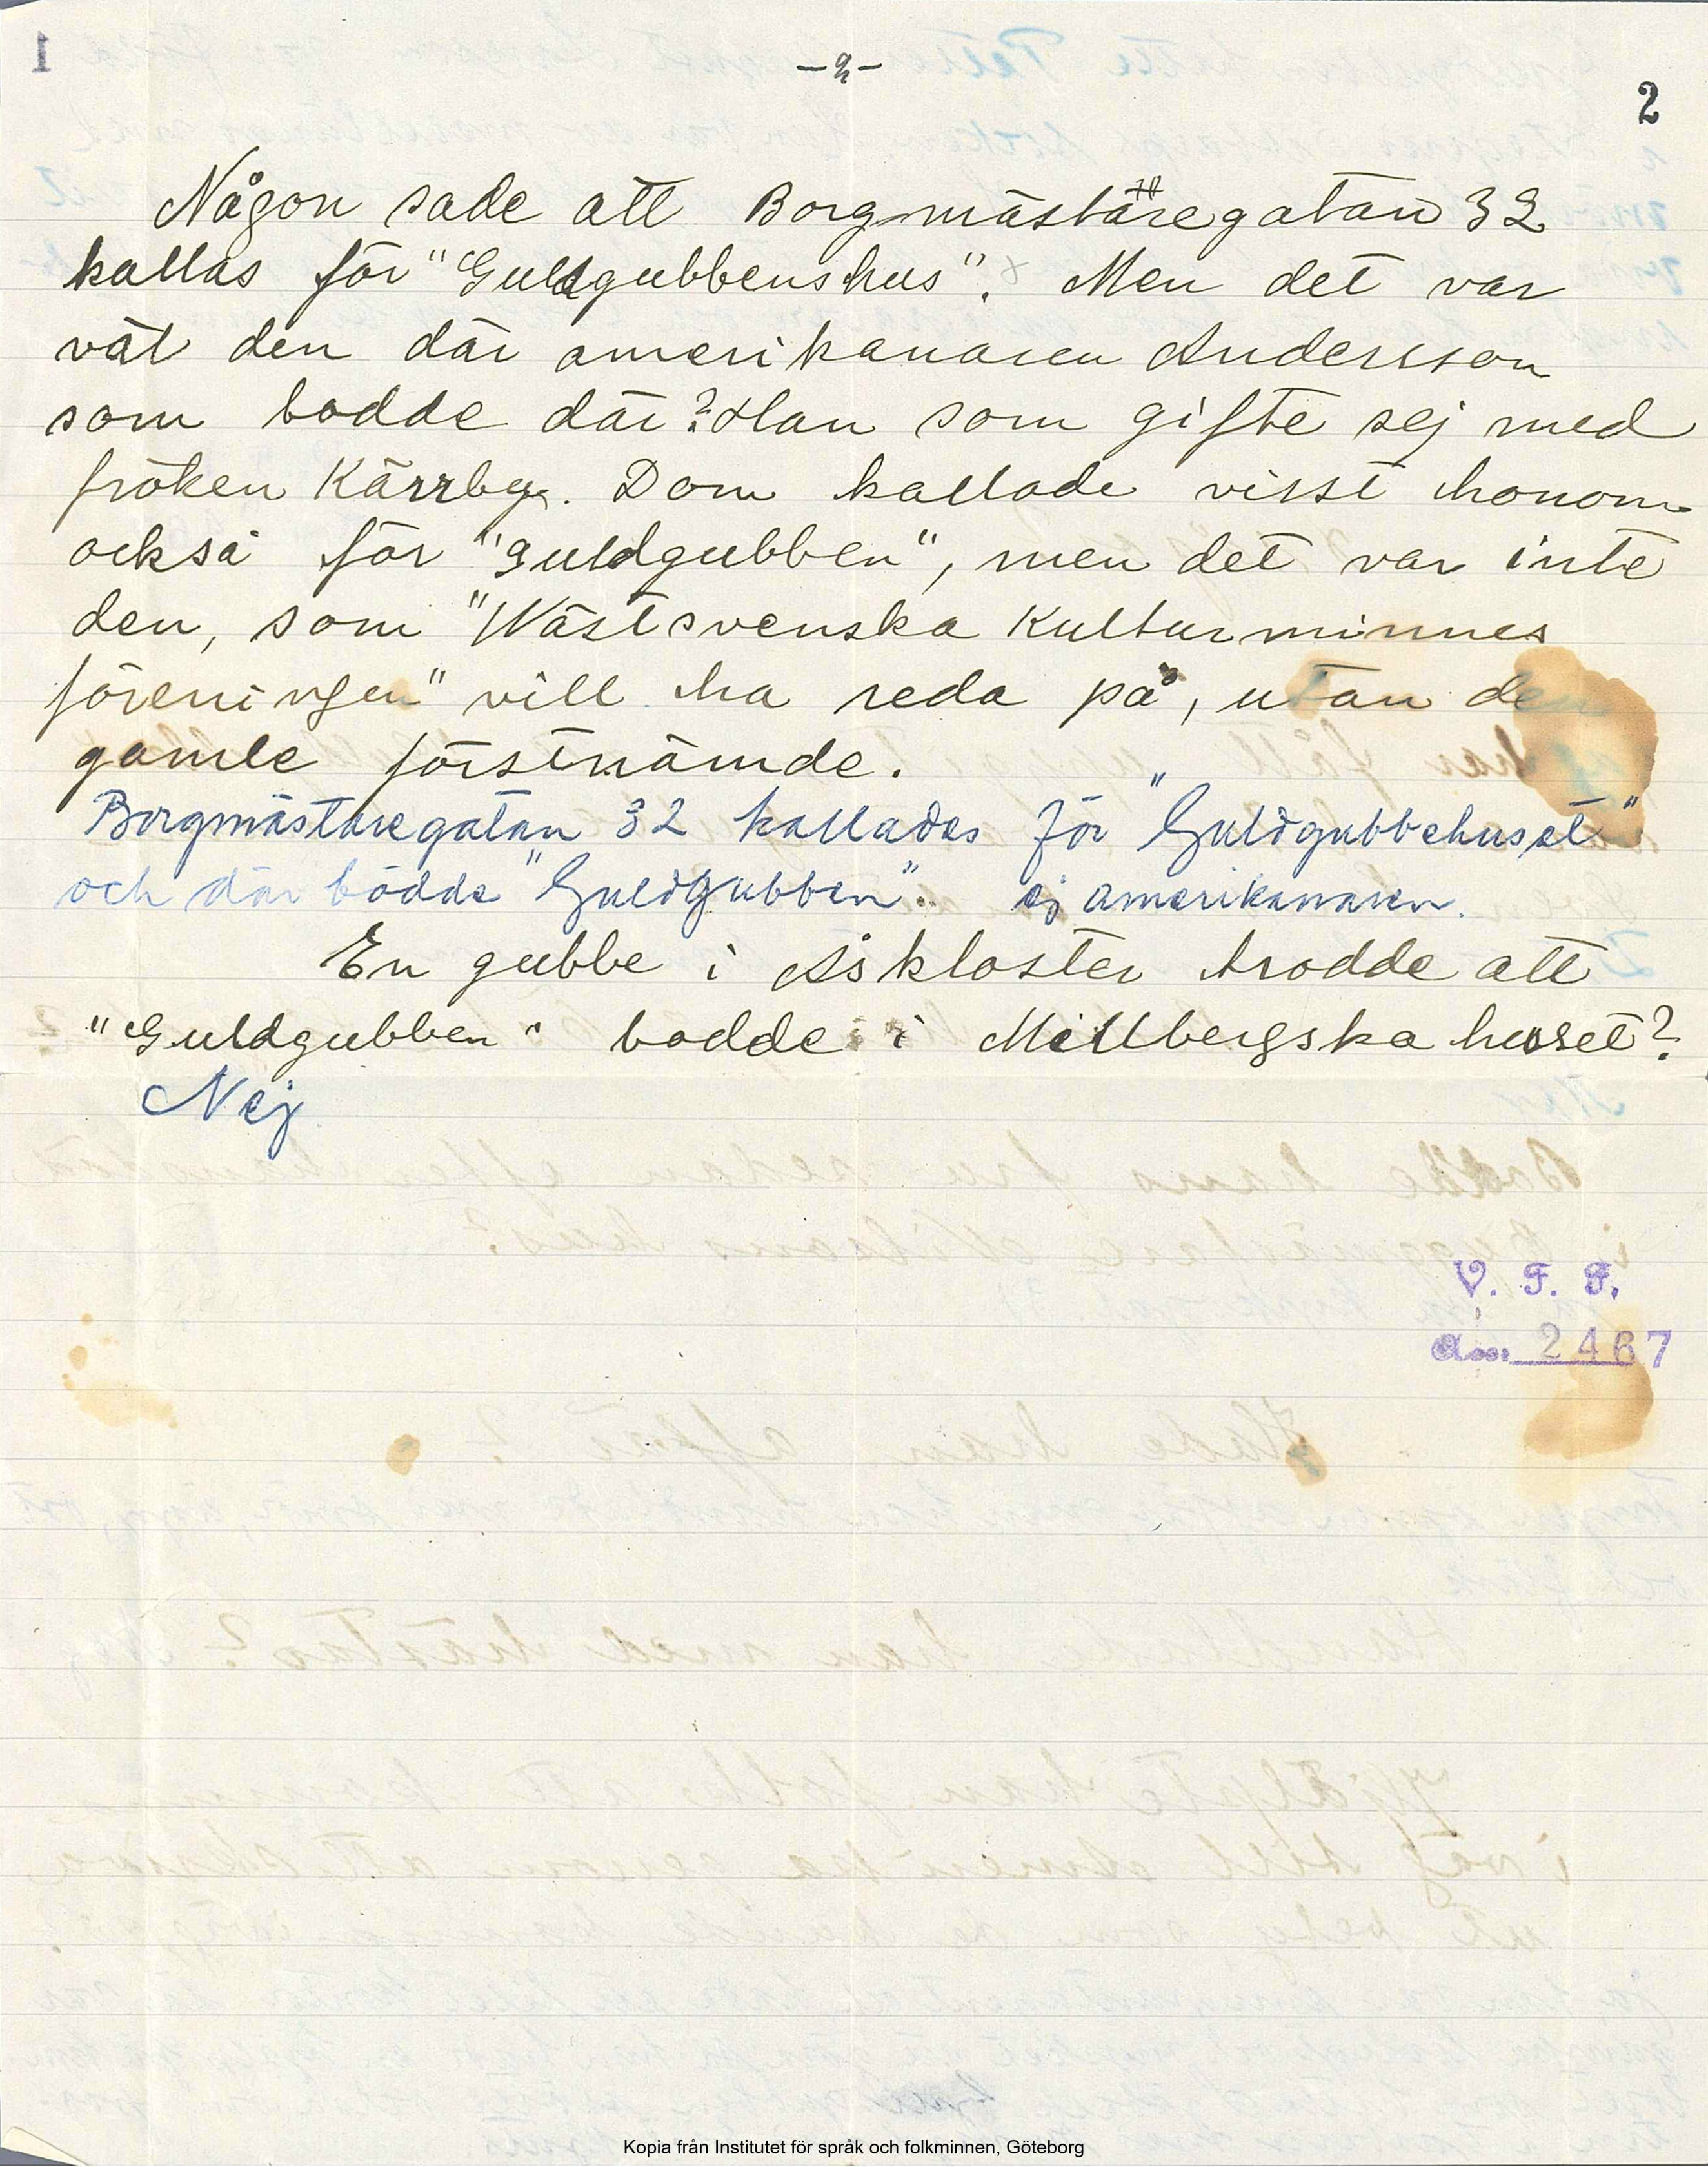 -2-
2
Någon sade att Borgmästäregatan 32
kallas för "Guldgubbenshus". x Men det var
väl den där amerikanaren Andersson
som bodde där? Han som gifte sej med
fröken Kärrby. Dom kallade visst honom
också för "guldgubben", men det var inte
den, som "Wästsvenska Kulturminnes
föreningen" vill ha reda på, utan den
gamle förstnämde.
Borgmästaregatan 32 kallades för "Guldgubbehuset"
och där bodde "Guldgubben". ej amerikanaren.
En gubbe i Åskloster trodde att
"Guldgubben" bodde i Millbergska husset?
Nej
V. F. F.
2467
Kopia från Institutet för språk och folkminnen, Göteborg